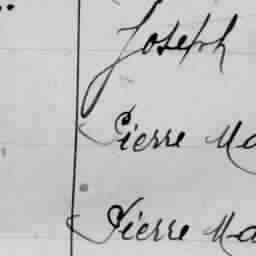 Joseph
Pierre Ma
Pierre Ma